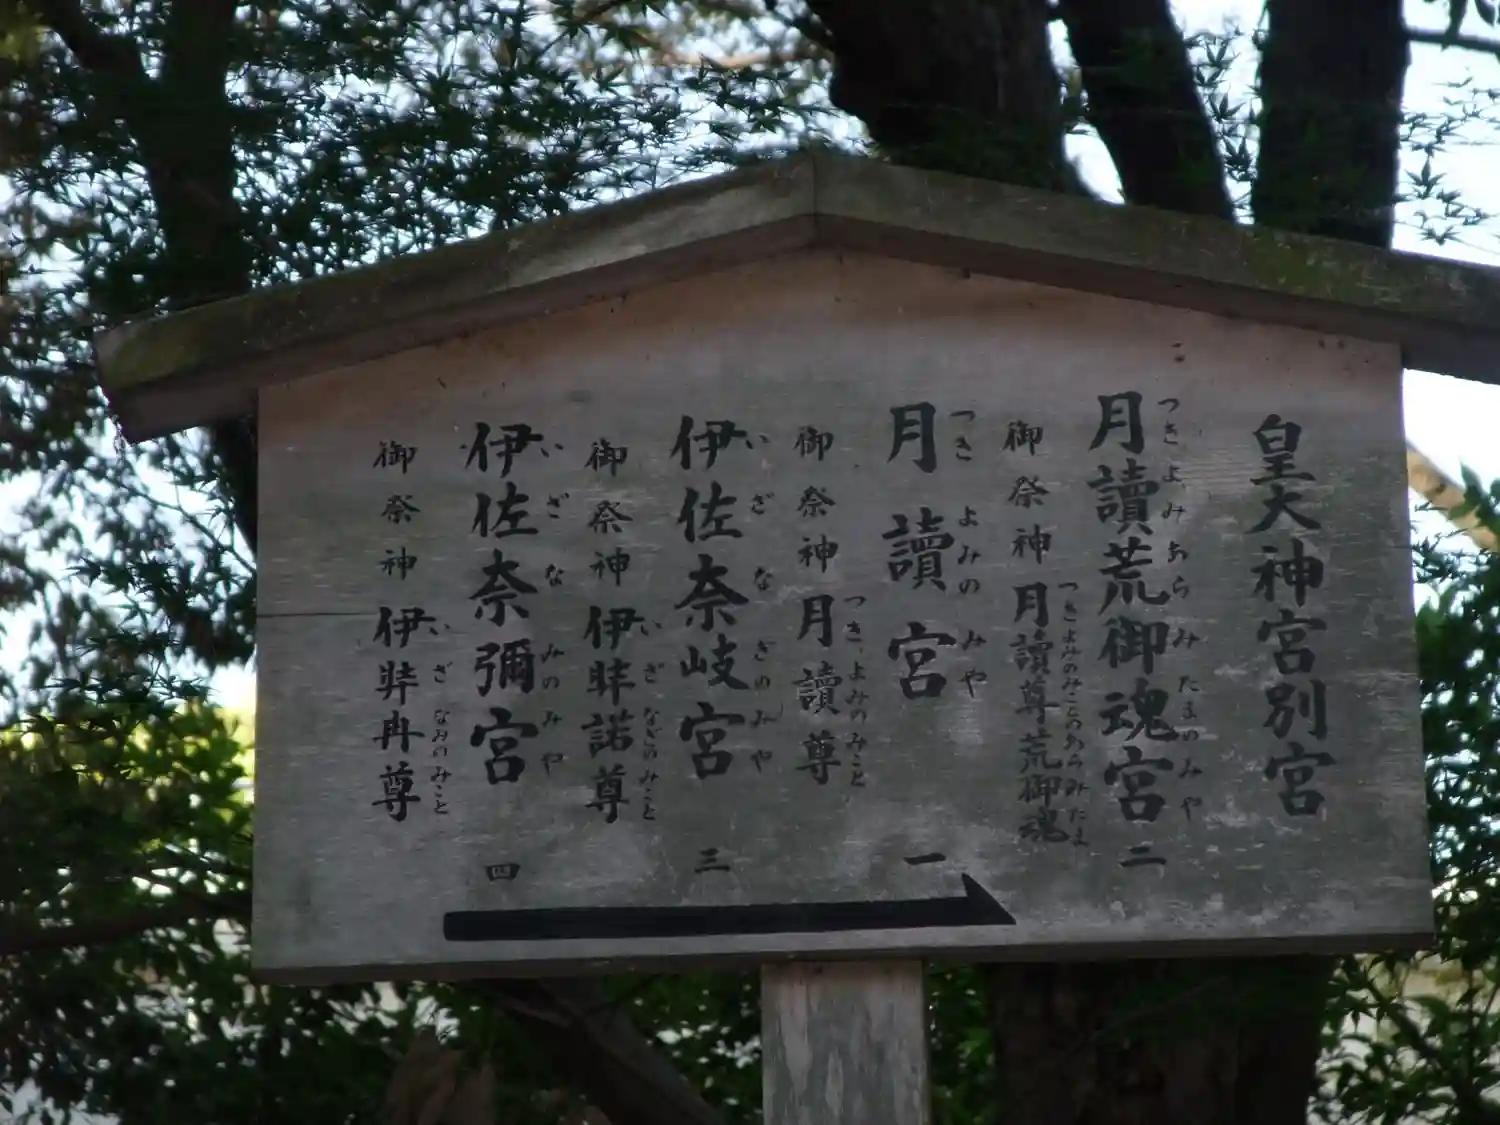 皇大神宮別宮
月讀荒御魂宮 二
つきよみあらみたまのみや
御祭神 月讀尊荒御魂
つきよみのみことのあらみたま
月讀宮 一
つきよみのみや
御祭神 月讀尊
つきよみのみこと
伊佐奈岐宮 三
いざなぎのみや
御祭神 伊弉諾尊
いざなぎのみこと
伊佐奈彌宮 四
いざなみのみや
御祭神 伊弉冉尊
いざなみのみこと